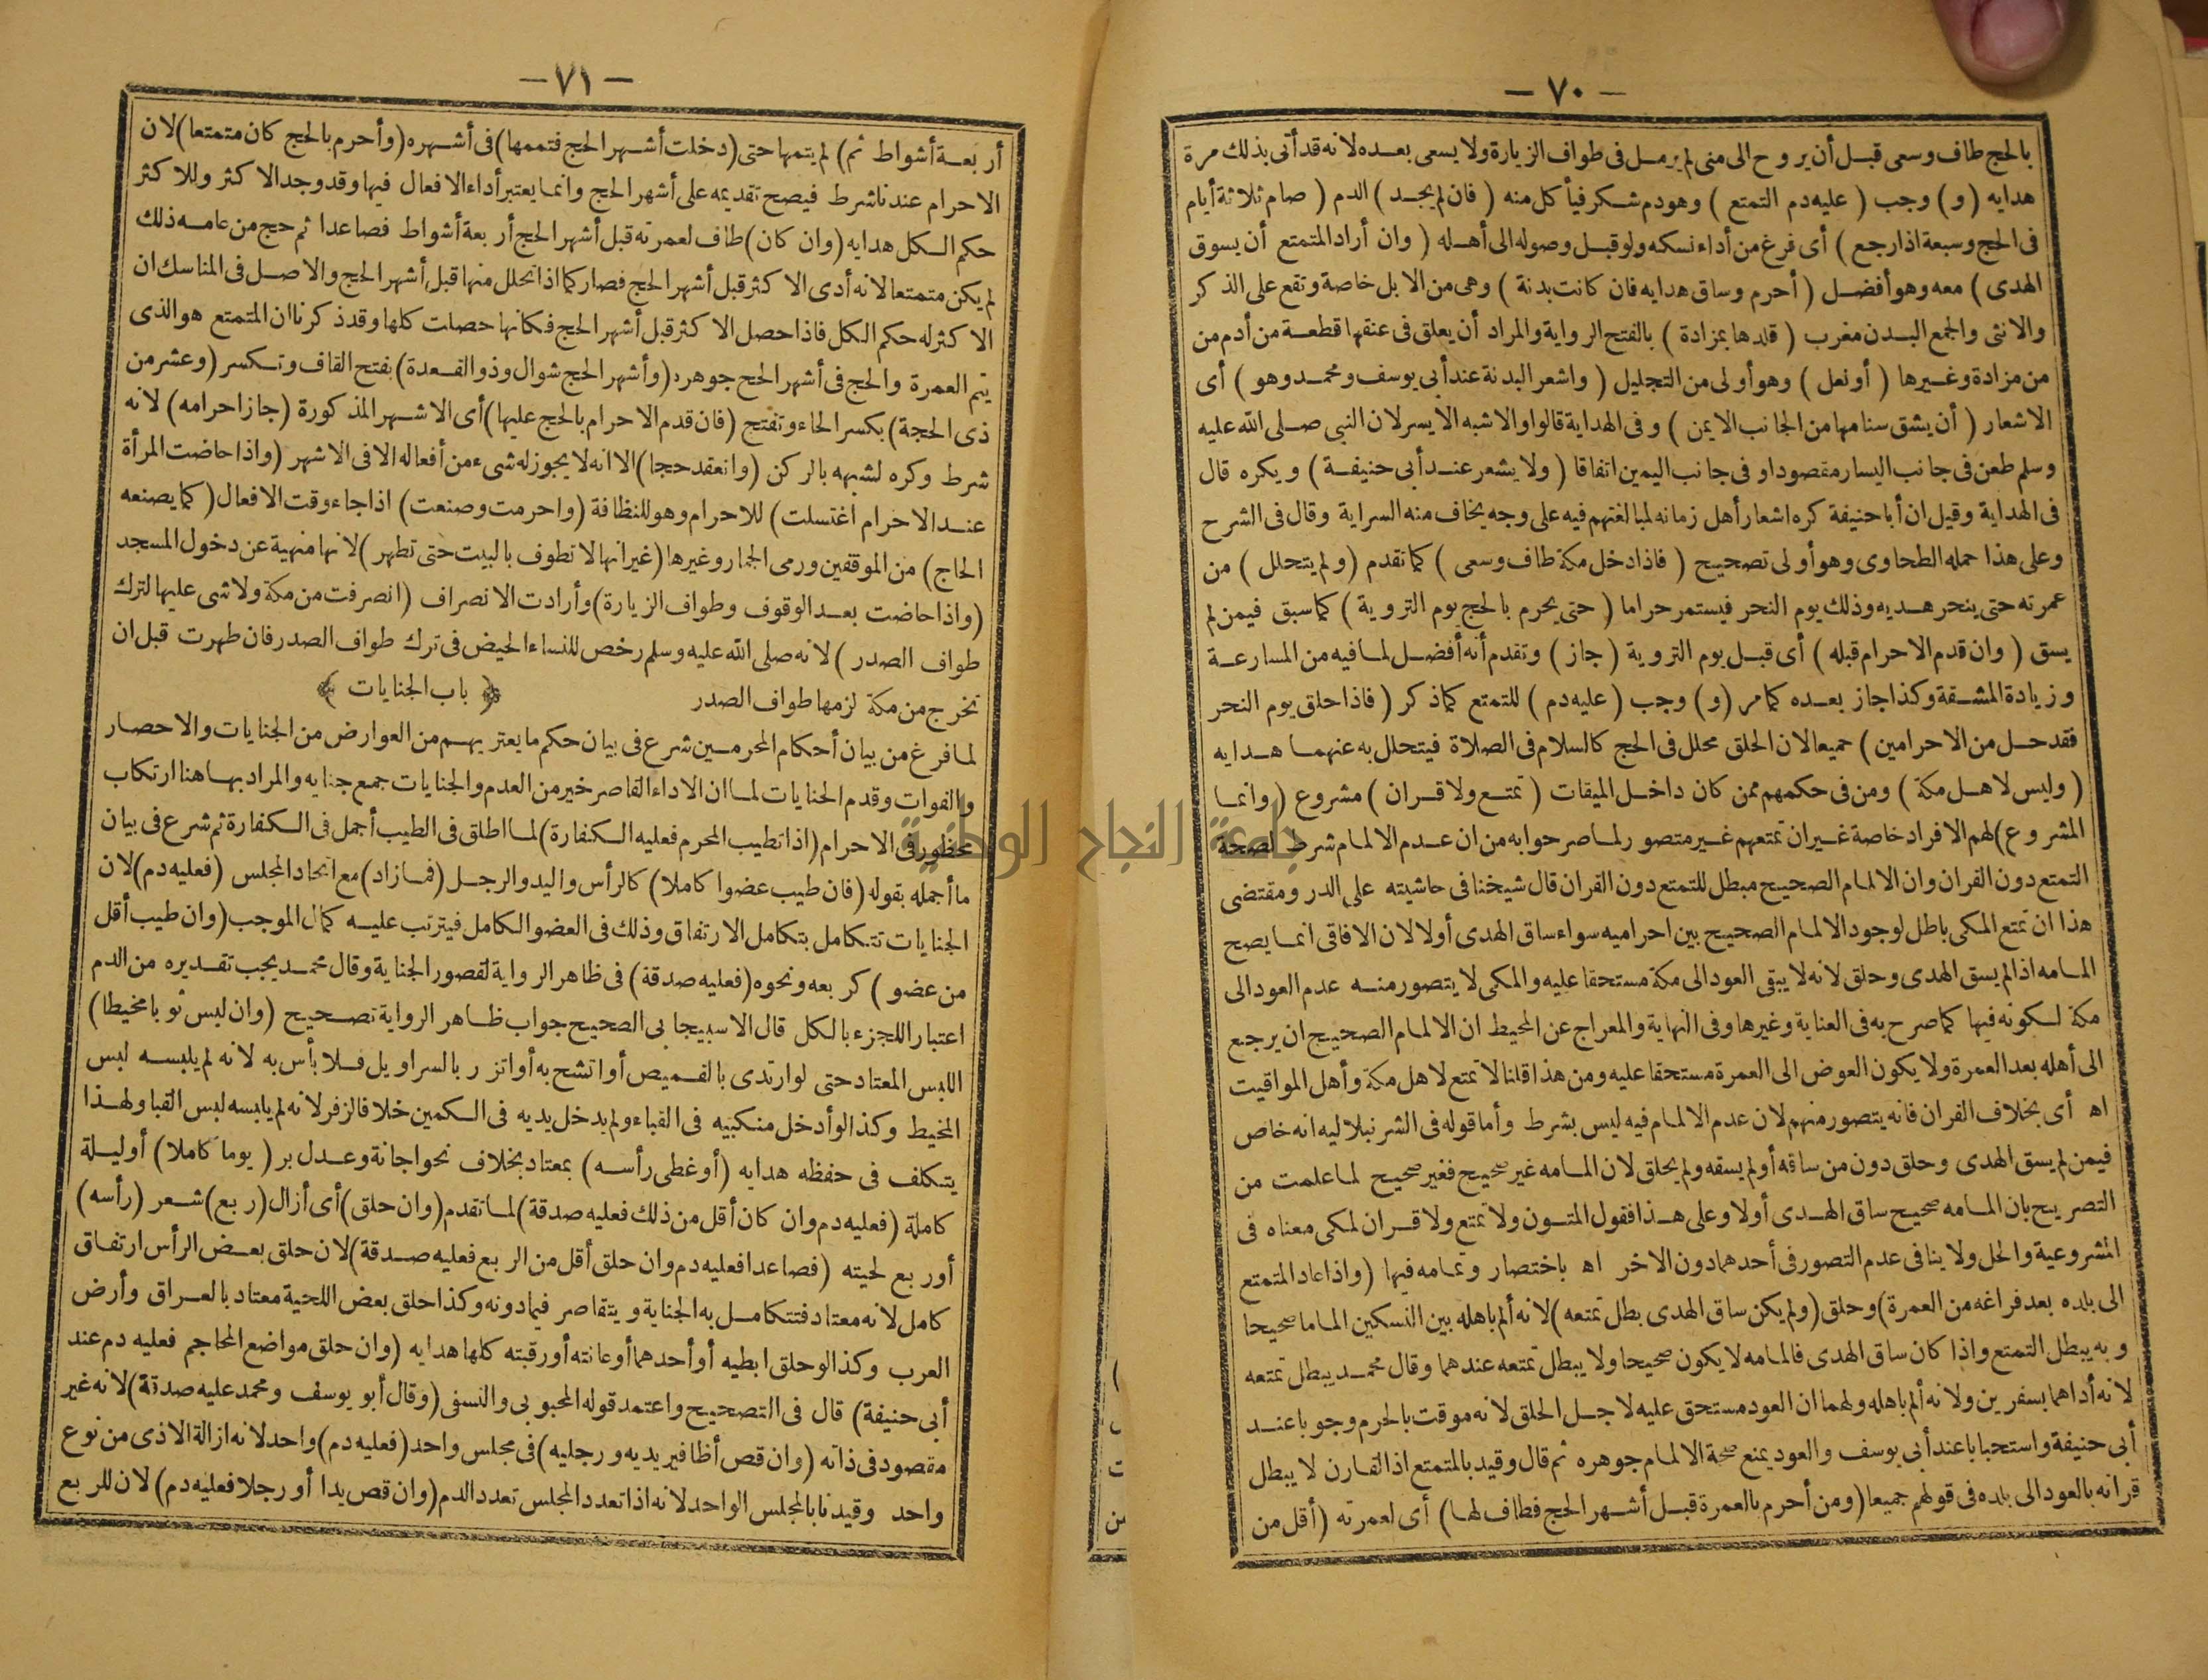 — ٧٠ —
بالحج طاف وسعى قبل أن يروح الى منى لم يرمل فى طواف الزيارة ولا يسعى بعده لانه قد أتى بذلك مرة
هدايه (و) وجب (عليه دم التمتع) وهو دم شكر فيأ كل منه (فان لم يجد) الدم (صام ثلاثة أيام
فى الحج وسبعة اذا رجع) أى فرغ من أداء نسكه ولو قبل وصوله الى أهله (وان أراد المتمتع أن يسوق
الهدى) معه وهو أفضل (أحرم وساق هدايه فان كانت بدنة) وهى من الابل خاصة وتقع على الذكر
والانثى والجمع البدن مغرب (قلدها بمزادة) بالفتح الرواية والمراد أن يعلق فى عنقها قطعة من أدم من
من مزادة وغيرها (أو نعل) وهو أولى من التجليل (واشعر البدنة عند أبى يوسف ومحمد وهو) أى
الاشعار (أن يشق سنامها من الجانب الايمن) وفى الهداية قالوا والاشبه الايسر لان النبى صلى الله عليه
وسلم طعن فى جانب اليسار مقصودا وفى جانب اليمين اتفاقا (ولا يشعر عند أبى حنيفة) ويكره قال
فى الهداية وقيل ان أبا حنيفة كره اشعار أهل زمانه لمبالغتهم فيه على وجه يخاف منه السراية وقال فى الشرح
وعلى هذا حمله الطحاوى وهو أولى تصحيح (فاذا دخل مكة طاف وسعى) كما تقدم (ولم يتحلل) من
عمرته حتى ينحر هديه وذلك يوم النحر فيستمر حراما (حتى يحرم بالحج يوم التروية) كما سبق فيمن لم
يسق (وان قدم الاحرام قبله) أى قبل يوم التروية (جاز) وتقدم أنه أفضل لما فيه من المسارعة
وزيادة المشقة وكذا جاز بعده كما مر (و) وجب (عليه دم) للتمتع كما ذكر (فاذا حلق يوم النحر
فقد حل من الاحرامين) جميعا لان الحلق محلل فى الحج كالسلام فى الصلاة فيتحلل به عنهما هدايه
(وليس لاهل مكة) ومن فى حكمهم ممن كان داخل الميقات (تمتع ولا قران) مشروع (وانما
المشروع) لهم الافراد خاصة غير ان تمتعهم غير متصور لما صرحوا به من ان عدم الالمام شرط لصحة
التمتع دون القران وان الالمام الصحيح مبطل للتمتع دون القران قال شيخنا فى حاشيته على الدر ومقتضى
هذا ان تمتع المكى باطل لوجود الالمام الصحيح بين احراميه سواء ساق الهدى أولا لان الافاقى انما يصح
المامه اذا لم يسق الهدى وحلق لانه لا يبقى العود الى مكة مستحقا عليه والمكى لا يتصور منه عدم العود الى
مكة لكونه فيها كما صرح به فى العناية وغيرها وفى النهاية والمعراج عن المحيط ان الالمام الصحيح ان يرجع
الى أهله بعد العمرة ولا يكون العوض الى العمرة مستحقا عليه ومن هذا قلنا لا تمتع لاهل مكة وأهل المواقيت
اه أى بخلاف القران فانه يتصور منهم لان عدم الالمام فيه ليس بشرط وأما قوله فى الشرنبلاليه انه خاص
فيمن لم يسق الهدى وحلق دون من ساقه أو لم يسقه ولم يحلق لان المامه غير صحيح فغير صحيح لما علمت من
التصريح بان المامه صحيح ساق الهدى أولا وعلى هذا فقول المتون ولا تمتع ولا قران لمكى معناه فى
المشروعية والحل ولا ينافى عدم التصور فى أحدهما دون الاخر اه باختصار وتمامه فيها (واذا عاد المتمتع
الى بلده بعد فراغه من العمرة) وحلق (ولم يكن ساق الهدى بطل تمتعه) لانه ألم باهله بين النسكين الماما صحيحا
وبه يبطل التمتع واذا كان ساق الهدى فالمامه لا يكون صحيحا ولا يبطل تمتعه عندهما وقال محمد يبطل تمتعه
لانه أداهما بسفرين ولانه ألم باهله ولهما ان العود مستحق عليه لاجل الحلق لانه موقت بالحرم وجوبا عند
أبى حنيفة واستحبابا عند أبى يوسف والعود يمنع صحة الالمام جوهره ثم قال وقيد بالمتمتع اذ القارن لا يبطل
قرانه بالعود الى بلده فى قولهم جميعا (ومن أحرم بالعمرة قبل أشهر الحج فطاف لها) أى لعمرته (أقل من
— ٧١ —
أربعة أشواط ثم) لم يتمها حتى (دخلت أشهر الحج فتممها) فى أشهره (وأحرم بالحج كان متمتعا) لان
الاحرام عندنا شرط فيصح تقديمه على أشهر الحج وانما يعتبر أداء الافعال فيها وقد وجد الاكثر وللاكثر
حكم الكل هدايه (وان كان) طاف لعمرته قبل أشهر الحج أربعة أشواط فصاعدا ثم حج من عامه ذلك
لم يكن متمتعا لانه أدى الاكثر قبل أشهر الحج فصار كما اذا تحلل منها قبل أشهر الحج والاصل فى المناسك ان
الاكثر له حكم الكل فاذا حصل الاكثر قبل أشهر الحج فكانها حصلت كلها وقد ذكرنا ان المتمتع هو الذى
يتم العمرة والحج فى أشهر الحج جوهره (وأشهر الحج شوال وذو القعدة) بفتح القاف وتكسر (وعشر من
ذى الحجة) بكسر الحاء وتفتح (فان قدم الاحرام بالحج عليها) أى الاشهر المذكورة (جاز احرامه) لانه
شرط وكره لشبهه بالركن (وانعقد حجا) الا انه لا يجوز له شىء من أفعاله الا فى الاشهر (واذا حاضت المرأة
عند الاحرام اغتسلت) للاحرام وهو للنظافة (واحرمت وصنعت) اذا جاء وقت الافعال (كما يصنعه
الحاج) من الموقفين ورمى الجمار وغيرها (غير انها لا تطوف بالبيت حتى تطهر) لانها منهية عن دخول المسجد
(واذا حاضت بعد الوقوف وطواف الزيارة) وأرادت الانصراف (انصرفت من مكة ولا شى عليها لترك
طواف الصدر) لانه صلى الله عليه وسلم رخص للنساء الحيض فى ترك طواف الصدر فان طهرت قبل ان
تخرج من مكة لزمها طواف الصدر ﴿ باب الجنايات ﴾
لما فرغ من بيان أحكام المحرمين شرع فى بيان حكم ما يعتريهم من العوارض من الجنايات والاحصار
والفوات وقدم الجنايات لما ان الاداء القاصر خير من العدم والجنايات جمع جنايه والمراد بها هنا ارتكاب
محظور فى الاحرام (اذا تطيب المحرم فعليه الكفارة) لما اطلق فى الطيب أجمل فى الكفارة ثم شرع فى بيان
ما أجمله بقوله (فان طيب عضوا كاملا) كالرأس واليد والرجل (فمازاد) مع اتحاد المجلس (فعليه دم) لان
الجنايات تتكامل بتكامل الارتفاق وذلك فى العضو الكامل فيترتب عليه كمال الموجب (وان طيب أقل
من عضو) كربعه ونحوه (فعليه صدقة) فى ظاهر الرواية لقصور الجناية وقال محمد يجب تقديره من الدم
اعتبار اللجزء بالكل قال الاسبيجابى الصحيح جواب ظاهر الرواية تصحيح (وان لبس ثوبا مخيطا)
اللبس المعتاد حتى لو ارتدى بالقميص أو اتشح به أو اتزر بالسراويل فلا بأس به لانه لم يلبسه لبس
المخيط وكذا لو أدخل منكبيه فى القباء ولم يدخل يديه فى الكمين خلافا لزفر لانه لم يلبسه لبس القبا ولهذا
يتكلف فى حفظه هدايه (أو غطى رأسه) بمعتاد بخلاف نحو اجانة وعدل بر (يوما كاملا) أو ليلة
كاملة (فعليه دم وان كان أقل من ذلك فعليه صدقة) لما تقدم (وان حلق) أى أزال (ربع) شعر (رأسه)
أو ربع لحيته (فصاعدا فعليه دم وان حلق أقل من الربع فعليه صدقة) لان حلق بعض الرأس ارتفاق
كامل لانه معتاد فتتكامل به الجناية ويتقاصر فيما دونه وكذا حلق بعض اللحية معتاد بالعراق وأرض
العرب وكذا لو حلق ابطيه أو أحدهما أو عانته أو رقبته كلها هدايه (وان حلق مواضع المحاجم فعليه دم عند
أبى حنيفة) قال فى التصحيح واعتمد قوله المحبوبى والنسفى (وقال أبو يوسف ومحمد عليه صدقة) لانه غير
مقصود فى ذاته (وان قص أظافير يديه ورجليه) فى مجلس واحد (فعليه دم) واحد لانه ازالة الاذى من نوع
واحد وقيدنا بالمجلس الواحد لانه اذا تعدد المجلس تعدد الدم (وان قص يدا أو رجلا فعليه دم) لان للربع
جامعة النجاح الوطنية